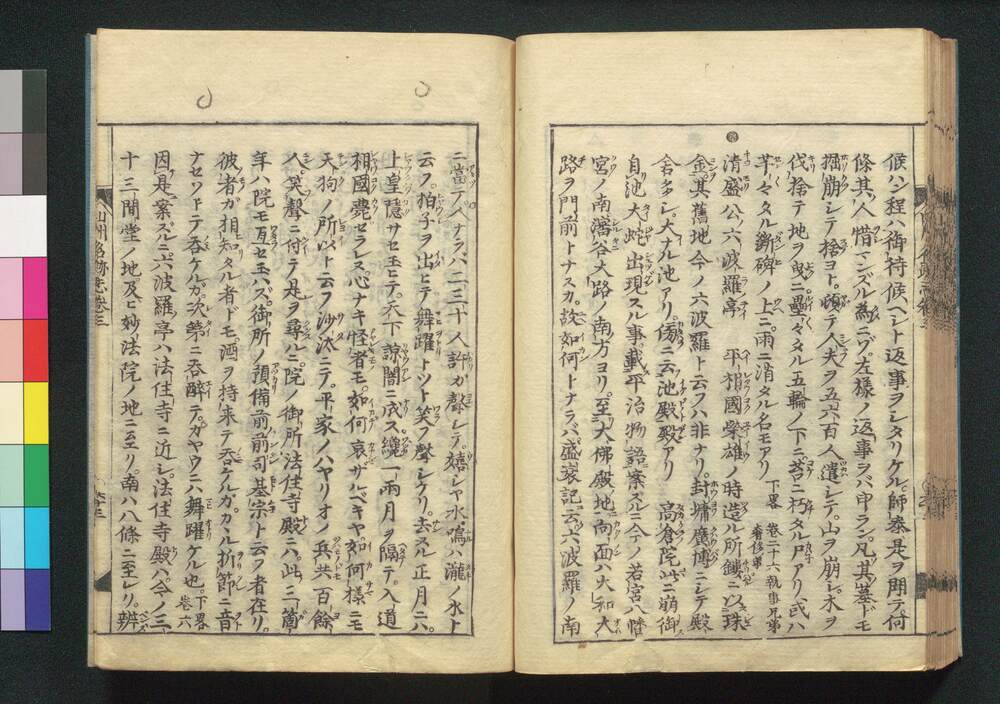 候ハン程ハ御待候ヘト返事ヲシタリケル師泰是ヲ聞テ何
條其人惜マンズル為ニゾ左樣ノ返事ヲバ申ラン凡其墓ドモ
掘崩シテ捨ヨトテ頓テ人夫ヲ五六百人遣シテ山ヲ崩シ木ヲ
伐捨テ地ヲ曳ニ壘々タル五輪ノ下ニ苔ニ朽タル尸アリ或ハ
芊々タル斷碑ノ上ニ雨ニ消タル名モアリ 下畧 卷二十六執事兄弟奢侈事
清盛公六波羅亭 平相國榮雄ノ時造ル所鏤ニ以珠
金其舊地今ノ六波羅ト云フハ非ナリ封墉廣博ニシテ殿
舍多シ大ナル池アリ傍ニ云池殿殿アリ 高倉院此ニ崩御
自池大蛇出現スル事載平治物語案スルニ今ノ若宮八幡
宮ノ南澁谷大路ノ南方ヨリ至大佛殿地向面ハ大和大
路ヲ門前トナスカ說如何トナラバ盛衰記ニ云六波羅ノ南
ニ當ヿハナラバ二三十人許カ聲シテ嬉シヤ水鳴ハ瀧ノ水ト
云フ拍子ヲ出ヒテ舞躍トツト笑フ聲シケリ去ヌル正月ニハ
上皇隱サセ玉ヒテ天下諒闇ニ成ヌ纔一兩月ヲ隔テ入道
相國薨セラレヌ心ナキ怪者モ如何哀サルベキヤ如何樣ニモ
天狗ノ所以ト云フ沙汰ニテ平家ノハヤリオノ兵共百餘
人笑聲ニ付テ是ヲ尋ルニ院ノ御所法住寺殿ニハ此三箇
年ハ院モ亙セ玉ハス御所ノ預備前前司基宗ト云フ者在リ
彼者カ相知タル者ドモ酒ヲ持来テ呑ケルガカヽル折節ニ音
ナセソトテ呑ケルカ次第ニ呑醉テガヤウニハ舞躍ケル也 下畧 卷六
因是案スルニ六波羅亭ハ法住寺ニ近シ法住寺殿ハ今ノ三
十三間堂ノ地及ヒ妙法院ノ地ニ至リ南ハ八條ニ至レリ辨
山州名跡志卷三